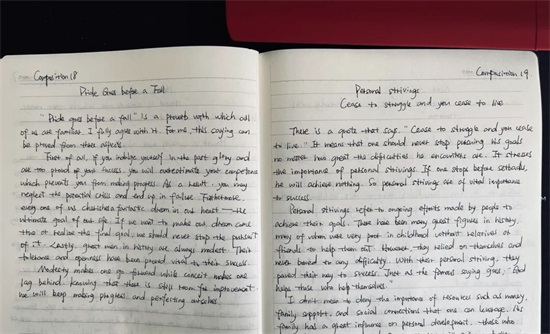 Composition 18
Pride Goes before a Fall
"Pride goes before a fall" is a proverb with which all
of us are familiar. I fully agree with it. For me, this saying can
be proved from three aspects.
First of all, if you indulge yourself in the past glory and
are too proud of your success, you will overestimate your competence
which prevents you from making progress. As a result, you may
neglect the potential crisis and end up in failure. Furthermore,
every one of us cherishes a fantastic dream in our heart — the
ultimate goal of our life. If we want to make our dream come
true or realize the final goal, we should never stop the pursuit
of it. Lastly, great men in history are always modest. Their
tolerance and openness have been proved vital to their success.
Modesty makes one go forward while conceit makes one
lag behind. Knowing that there is still room for improvement
we will keep making progress and perfecting ourselves!
Composition 19
Personal strivings
Cease to struggle and you cease to live
There is a quote that says, "Cease to struggle and you cease
to live." It means that one should never stop pursuing his goals
no matter how great the difficulties he encounters are. It stresses
the importance of personal strivings. If one stops before setbacks,
he will achieve nothing. So personal striving are of vital importance
to success.
Personal strivings refer to ongoing efforts made by people to
achieve their goals. There have been many great figures in history,
many of whom were very poor in childhood without relatives or
friends to help them out. However, they relied on themselves and
never bowed to any difficulty. With their personal striving, they
paved their way to success. Just as the famous saying goes, "God
helps those who help themselves."
I don't mean to deny the importance of resources such as money,
family support, and social connections that one can leverage. As
family has a great influence on personal development, those who